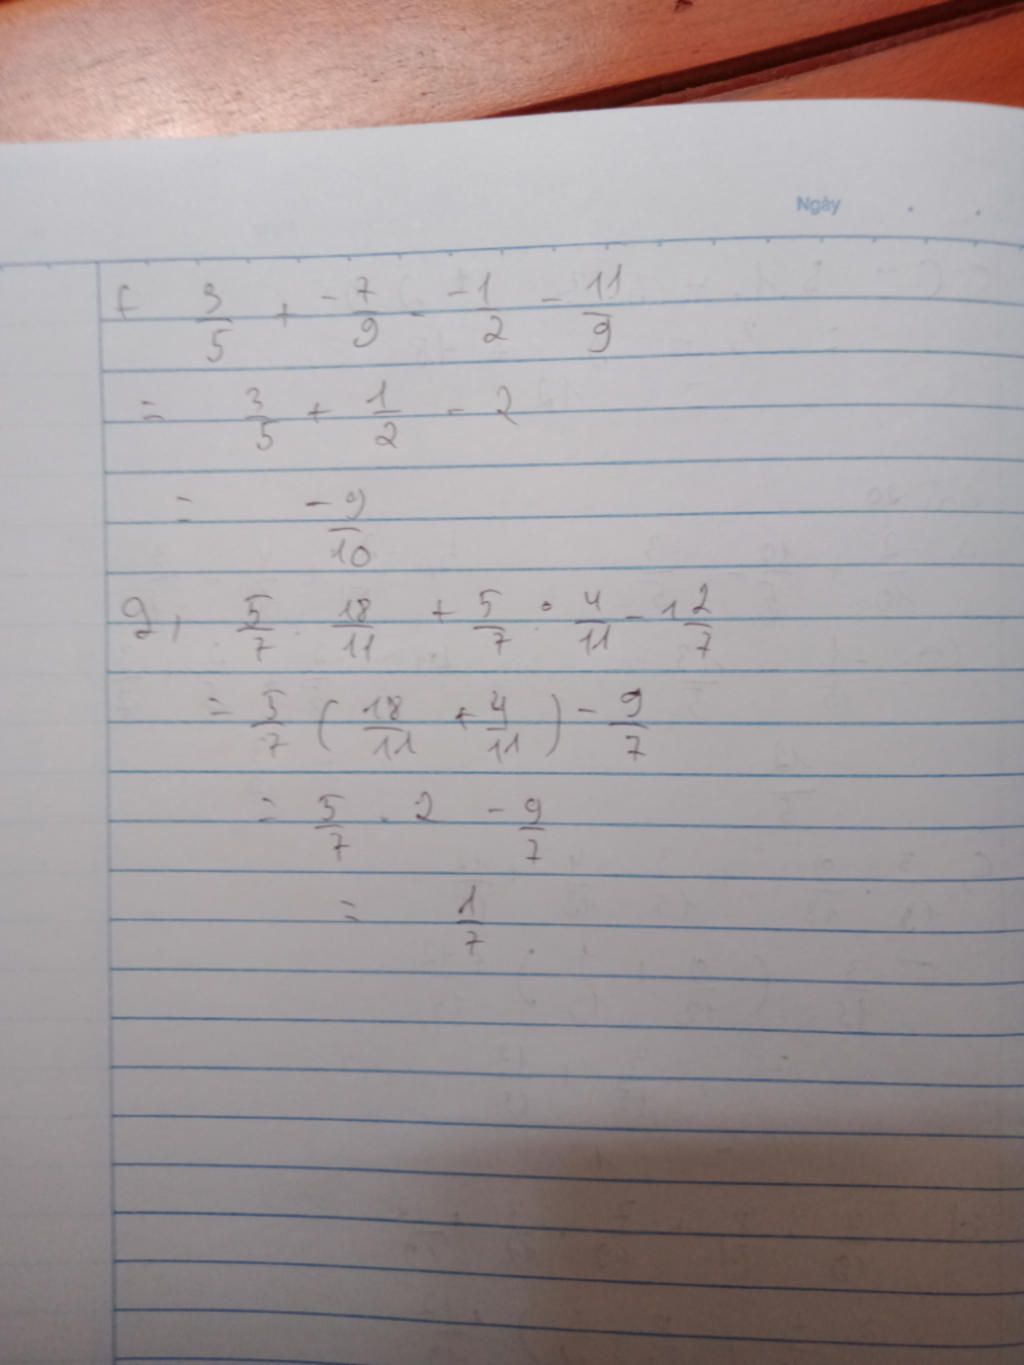 Ngày
f 3/5 + -7/9 - -1/2 - 11/9
= 3/5 + 1/2 - 2
= -9/10
g, 5/7 . 18/11 + 5/7 . 4/11 - 1 2/7
= 5/7 ( 18/11 + 4/11 ) - 9/7
= 5/7 . 2 - 9/7
= 1/7 .